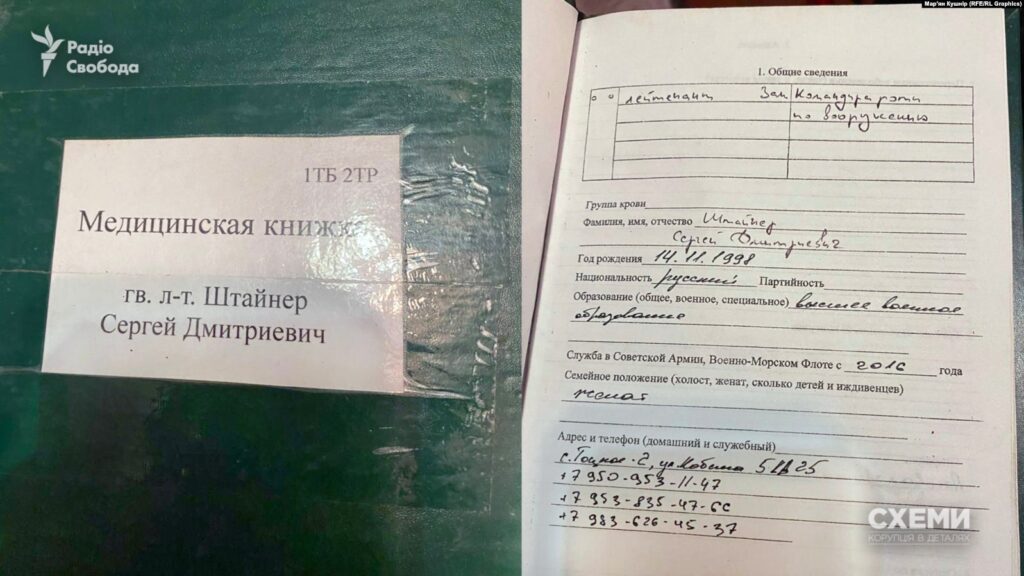 Радіо
Свобода
1ТБ 2ТР
Медицинская книжка
гв. л-т. Штайнер
Сергей Дмитриевич
Мар'ян Кушнір (RFE/RL Graphics)
1. Общие сведения
лейтенант Зам Командира роты
по вооружению
Группа крови
Фамилия, имя, отчество Штайнер
Сергей Дмитриевич
Год рождения 14.11.1998
Национальность русский Партийность
Образование (общее, военное, специальное) высшее военное
образование
Служба в Советской Армии, Военно-Морском Флоте с 2016 года
Семейное положение (холост, женат, сколько детей и иждивенцев)
женат
Адрес и телефон (домашний и служебный)
с. Тоцкое-2, ул
+7 950-953-11-47
+7 953-835-47-66
+7 983-626-45-37
СХЕМИ
КОРУПЦІЯ В ДЕТАЛЯХ